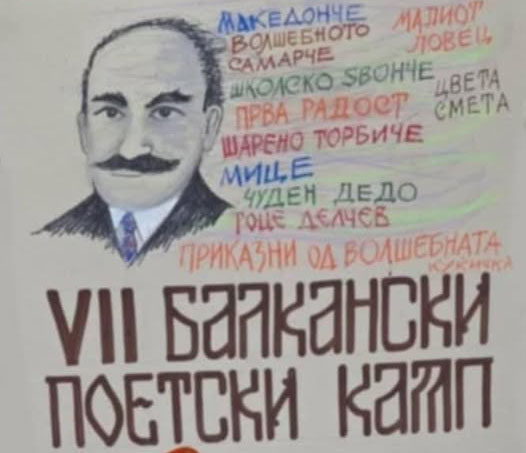 МАКЕДОНЧЕ
ВОЛШЕБНОТО
САМАРЧЕ
МАЛИОТ
ЛОВЕЦ
ШКОЛСКО ЅВОНЧЕ
ЦВЕТА
СМЕТА
ПРВА РАДОСТ
ШАРЕНО ТОРБИЧЕ
МИЦЕ
ЧУДЕН ДЕДО
ГОЦЕ ДЕЛЧЕВ
ПРИКАЗНИ ОД ВОЛШЕБНАТА
VII БАЛКАНСКИ
ПОЕТСКИ КАМП